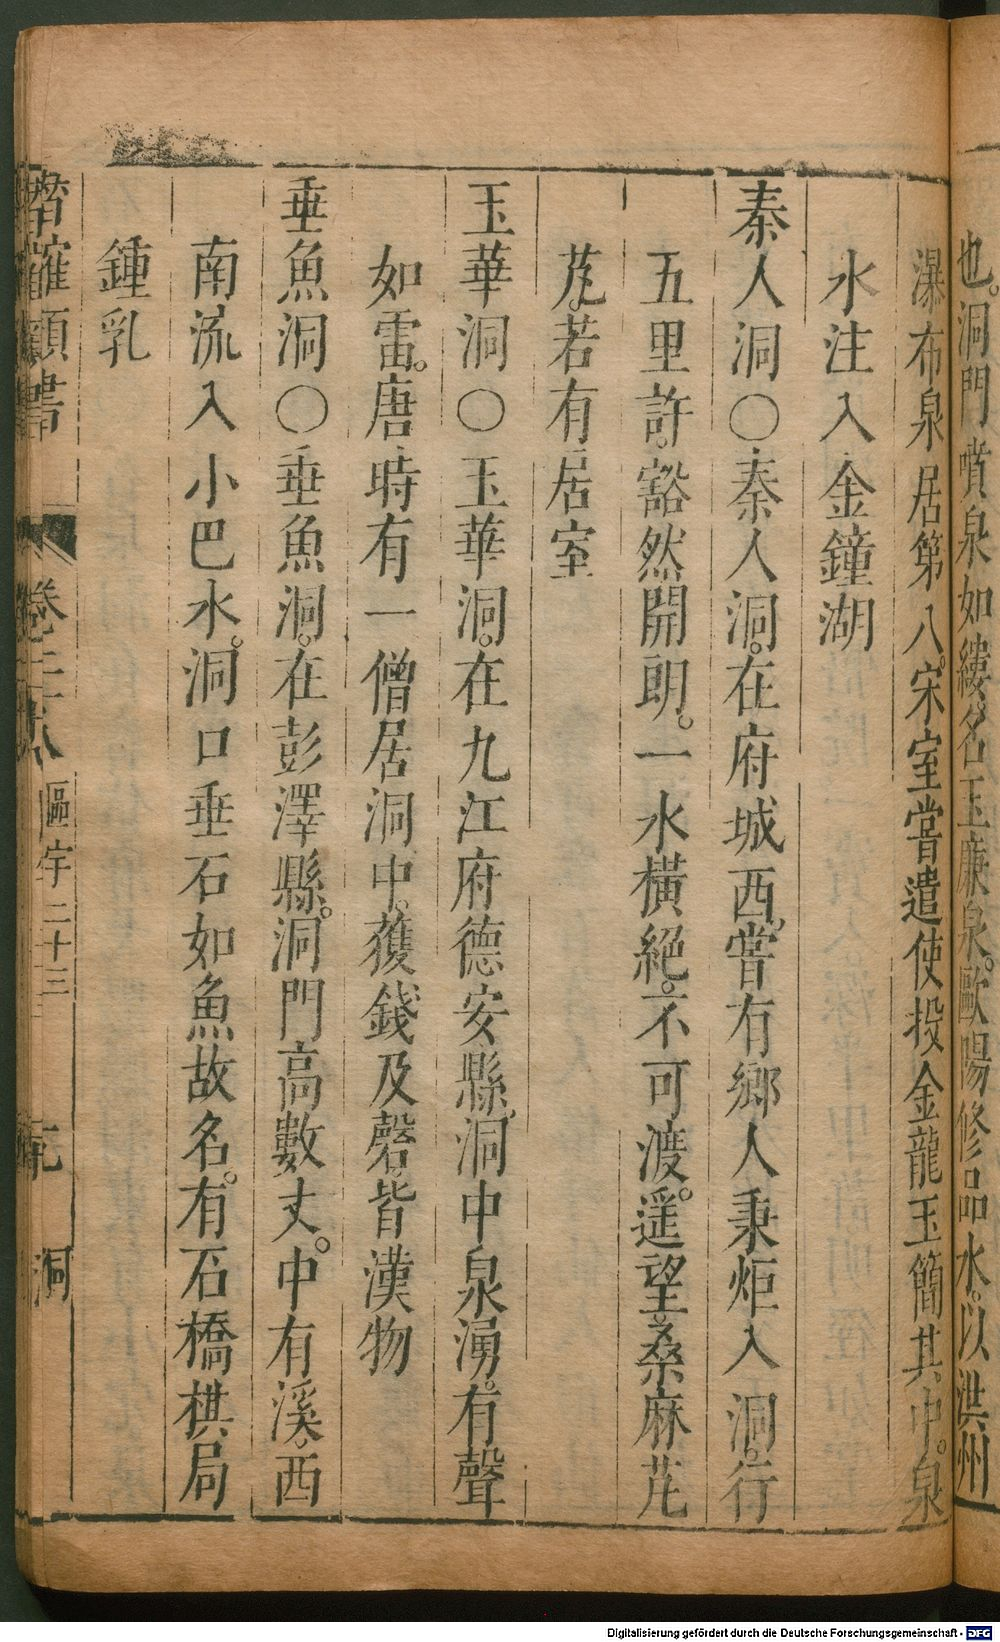 也。洞門噴泉如縷。名玉廉泉。歐陽修品水。以洪州
瀑布泉居第八。宋室嘗遣使投金龍玉簡其中。泉
水注入金鐘湖
秦人洞〇秦人洞。在府城西。嘗有鄉人秉炬入洞。行
五里許。豁然開朗。一水橫絕。不可渡。遥望桑麻芃
芃。若有居室
玉華洞〇玉華洞。在九江府德安縣。洞中泉湧。有聲
如雷。唐時有一僧居洞中。獲錢及磬。皆漢物
垂魚洞〇垂魚洞。在彭澤縣。洞門高數丈。中有溪。西
南流入小巴水。洞口垂石如魚故名。有石橋棋局
鍾乳
潛確類書
區宇二十三
洞
Digitalisierung gefördert durch die Deutsche Forschungsgemeinschaft - DFG